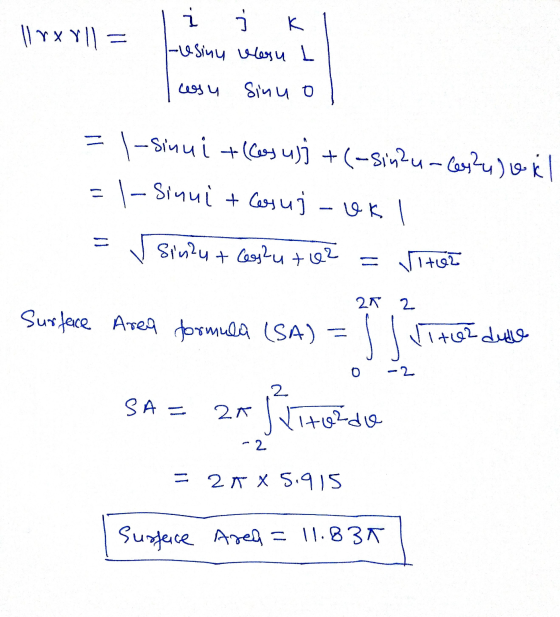 ||r x r|| = | i j k |
| -v sin u v cos u 1 |
| cos u sin u 0 |
= |-sin u i + (cos u) j + (-sin²u - cos²u) v k|
= |- sin u i + cos u j - v k|
= √(sin²u + cos²u + v²) = √(1+v²)
Surface Area formula (SA) = ∫₀^2π ∫₋₂^2 √(1+v²) du dv
SA = 2π ∫₋₂^2 √(1+v²) dv
= 2π x 5.915
Surface Area = 11.83π